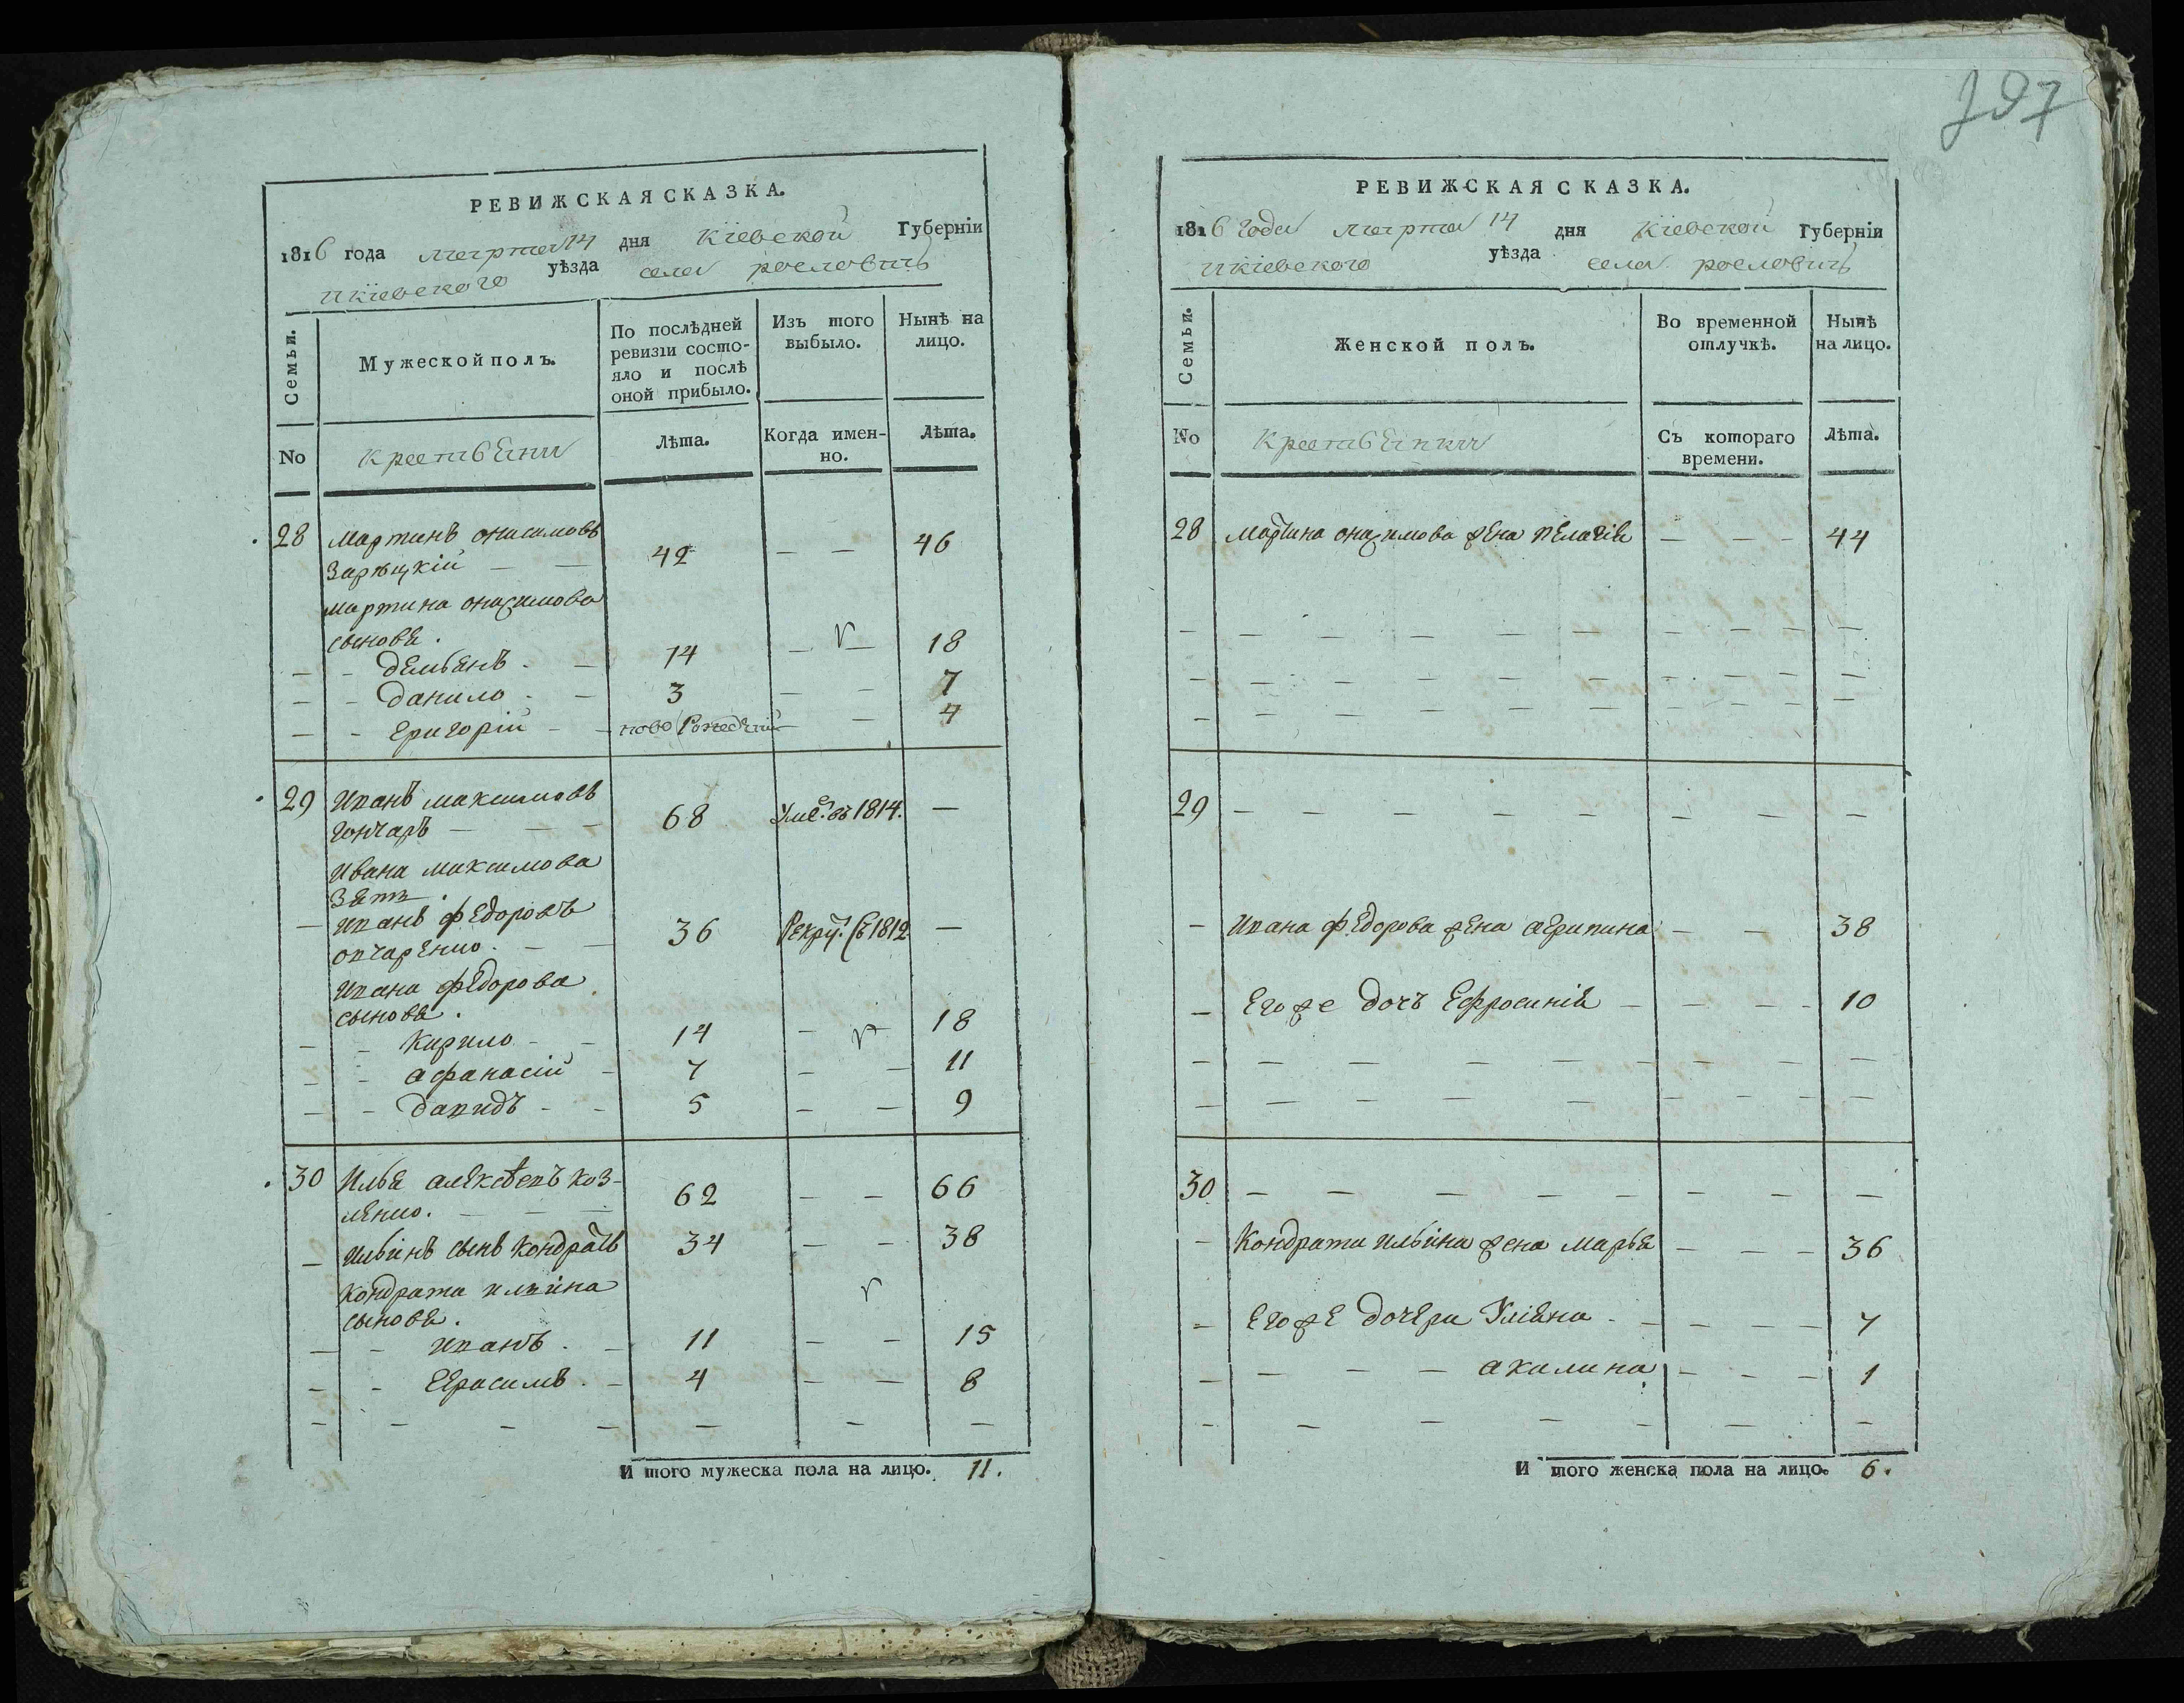 РЕВИЖСКАЯ СКАЗКА.
1816 года марта 14 дня Кіевской Губерніи
икіевского уѣзда села рословичъ
Семьи.
Мужеской полъ.
По послѣдней
ревизіи состо-
яло и послѣ
оной прибыло.
Изъ того
выбыло.
Нынѣ на
лицо.
No
крестьяни
Лѣта.
Когда имен-
но.
Лѣта.
28 Мартинъ онисимовъ
Зарѣцкій — — 42 — — 46
мартина онисимова
сыновя.
— - демьянъ . — 14 — — 18
— - данило - — 3 — — 7
— - григорій - — ново рожедени — 4
29 Иванъ максимовъ
гончаръ — — — 68 Уме: въ 1814. —
Ивана максимова
зять.
— иванъ федоровъ
овчаренко. — — 36 Рекру: съ 1812 —
ивана федорова
сыновя.
— - Кирило - - 14 — — 18
— - афанасій - 7 — — 11
— - давидъ - - 5 — — 9
30 Илья алексѣевъ коз-
ленко. — — — 62 — — 66
— ильинъ сынъ кондратъ 34 — — 38
кондрата илиина
сыновя.
— - иванъ . - 11 — — 15
— - Герасимъ . - 4 — — 8
- - - - - - -
И того мужеска пола на лицо. 11.
797
РЕВИЖСКАЯ СКАЗКА.
1816 года марта 14 дня Кіевской Губерніи
икіевского уѣзда села рословичъ
Семьи.
Женской полъ.
Во временной
отлучкѣ.
Нынѣ
на лицо.
No
Крестьянки
Съ котораго
времени.
Лѣта.
28 Мартина онисимова жена пелагія — — - 44
29 — — — — — — — —
- ивана федорова жена агрипина — — 38
- его же дочъ Ефросинія — — — - 10
30 — — — — — — — —
- Кондрата ильина жена марья — — — 36
- его же дочери Уліяна - — — — — 7
- — — — акилина — - — 1
- — — — - — -
И того женска пола на лицо. 6.